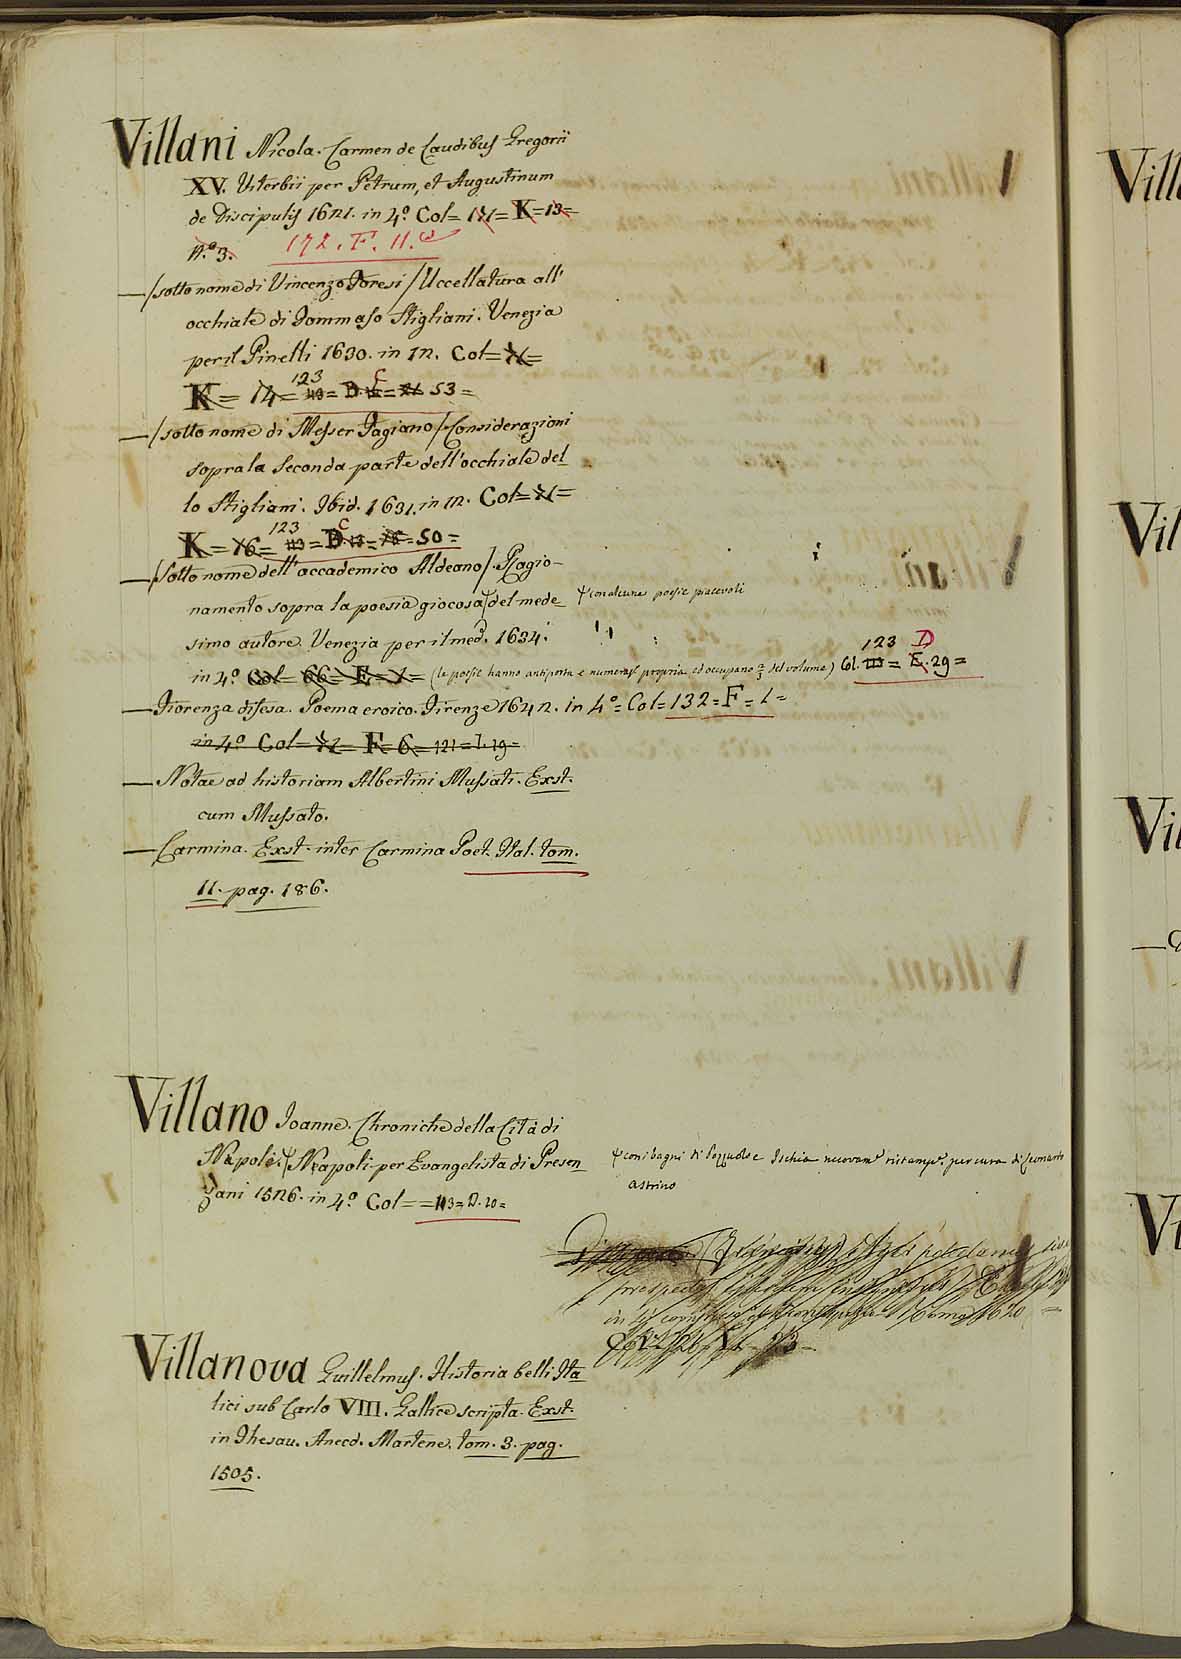 Villani Nicola. Carmen de Laudibus Gregorii
XV. Viterbii per Petrum, et Augustinum
de Discipulis 1621. in 4.º Col= 171= K=13=
N.º 3. 172. F. 11.
—/sotto nome di Vincenzo Foresi/ Uccellatura all'
occhiale di Tommaso Stigliani. Venezia
per il Pinelli 1630. in 12. Col= 71=
K= 14= 123 C 53=
—/sotto nome di Messer Fagiano/ Considerazioni
sopra la seconda parte dell'occhiale del
lo Stigliani. Ibid. 1631. in 12. Col= 71=
K=16= 123 C 50=
—/Sotto nome dell'accademico Aldeano/. Ragio-
namento sopra la poesia giocosa del mede
con alcune poesie piacevoli
simo autore. Venezia per il med.º 1634.
in 4.º Col= 66= E= 1= (le poesie hanno antiporta e numeraz. propria ed occupano 2/3 del volume) Col. 113= 123 E. D 29=
—Fiorenza difesa. Poema eroico. Firenze 1642. in 4º= Col=132=F=1=
in 4.º Col= 71= F=6= 121=I.19=
—Notae ad historiam Albertini Mussati. Exst.
cum Mussato.
—Carmina. Exst. inter Carmina Poet. Ital. tom.
11. pag. 186.
Villano Joanne. Chroniche della Cità di
Napoli. Napoli per Evangelista di Presen
con i bagni di Pozzuolo e Ischia nuovam.e ristamp.e per cura di Leonardo
astrino
zani 1526. in 4.º Col= =113=D.20=
Villanova Guillelmus. Historia belli Ita
lici sub Carlo VIII. Gallice scripta. Exst.
in Thesau. Anecd. Martene. tom. 3. pag.
1505.
Vill
Vil
Vil
Vi